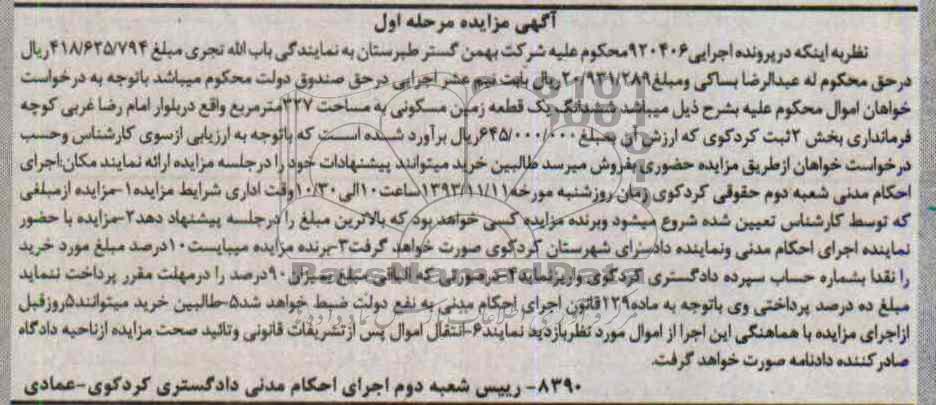 آگهی مزایده مرحله اول
نظربه اینکه درپرونده اجرایی۹۲۰۴۰۶محکوم علیه شرکت بهمن گستر طبرستان به نمایندگی باب الله تجری مبلغ ۴۱۸/۶۲۵/۷۹۴ریال
درحق محکوم له عبدالرضا بساکی ومبلغ۲۰/۹۳۱/۲۸۹ ریال بابت نیم عشر اجرایی درحق صندوق دولت محکوم میباشد باتوجه به درخواست
خواهان اموال محکوم علیه بشرح ذیل میباشد ششدانگ یک قطعه زمین مسکونی به مساحت ۳۲۷مترمربع واقع دربلوار امام رضا غربی کوچه
فرمانداری بخش ۲ثبت کردکوی که ارزش آن بمبلغ ۶۴۵/۰۰۰/۰۰۰ریال برآورد شده است که باتوجه به ارزیابی ازسوی کارشناس وحسب
درخواست خواهان ازطریق مزایده حضوری بفروش میرسد طالبین خرید میتوانند پیشنهادات خود را درجلسه مزایده ارائه نمایند مکان:اجرای
احکام مدنی شعبه دوم حقوقی کردکوی زمان روزشنبه مورخه۱۳۹۳/۱۱/۱۱ساعت۱۰الی۱۰/۳۰وقت اداری شرایط مزایده۱-مزایده ازمبلغی
که توسط کارشناس تعیین شده شروع میشود وبرنده مزایده کسی خواهد بود که بالاترین مبلغ را درجلسه پیشنهاد دهد۲-مزایده با حضور
نماینده اجرای احکام مدنی ونماینده دادسرای شهرستان کردکوی صورت خواهد گرفت۳-برنده مزایده میبایست۱۰درصد مبلغ مورد خرید
را نقدا بشماره حساب سپرده دادگستری کردکوی واریزنماید۴-درصورتی که الباقی مبلغ بمیزان۹۰درصد را درمهلت مقرر پرداخت ننماید
مبلغ ده درصد پرداختی وی باتوجه به ماده۱۲۹قانون اجرای احکام مدنی به نفع دولت ضبط خواهد شد۵-طالبین خرید میتوانند۵روزقبل
ازاجرای مزایده با هماهنگی این اجرا از اموال مورد نظربازدید نمایند۶-انتقال اموال پس ازتشریفات قانونی وتائید صحت مزایده ازناحیه دادگاه
صادرکننده دادنامه صورت خواهد گرفت.
۸۳۹۰- رییس شعبه دوم اجرای احکام مدنی دادگستری کردکوی-عمادی